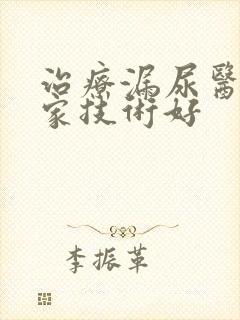 治療漏尿醫
家技術好
李振革